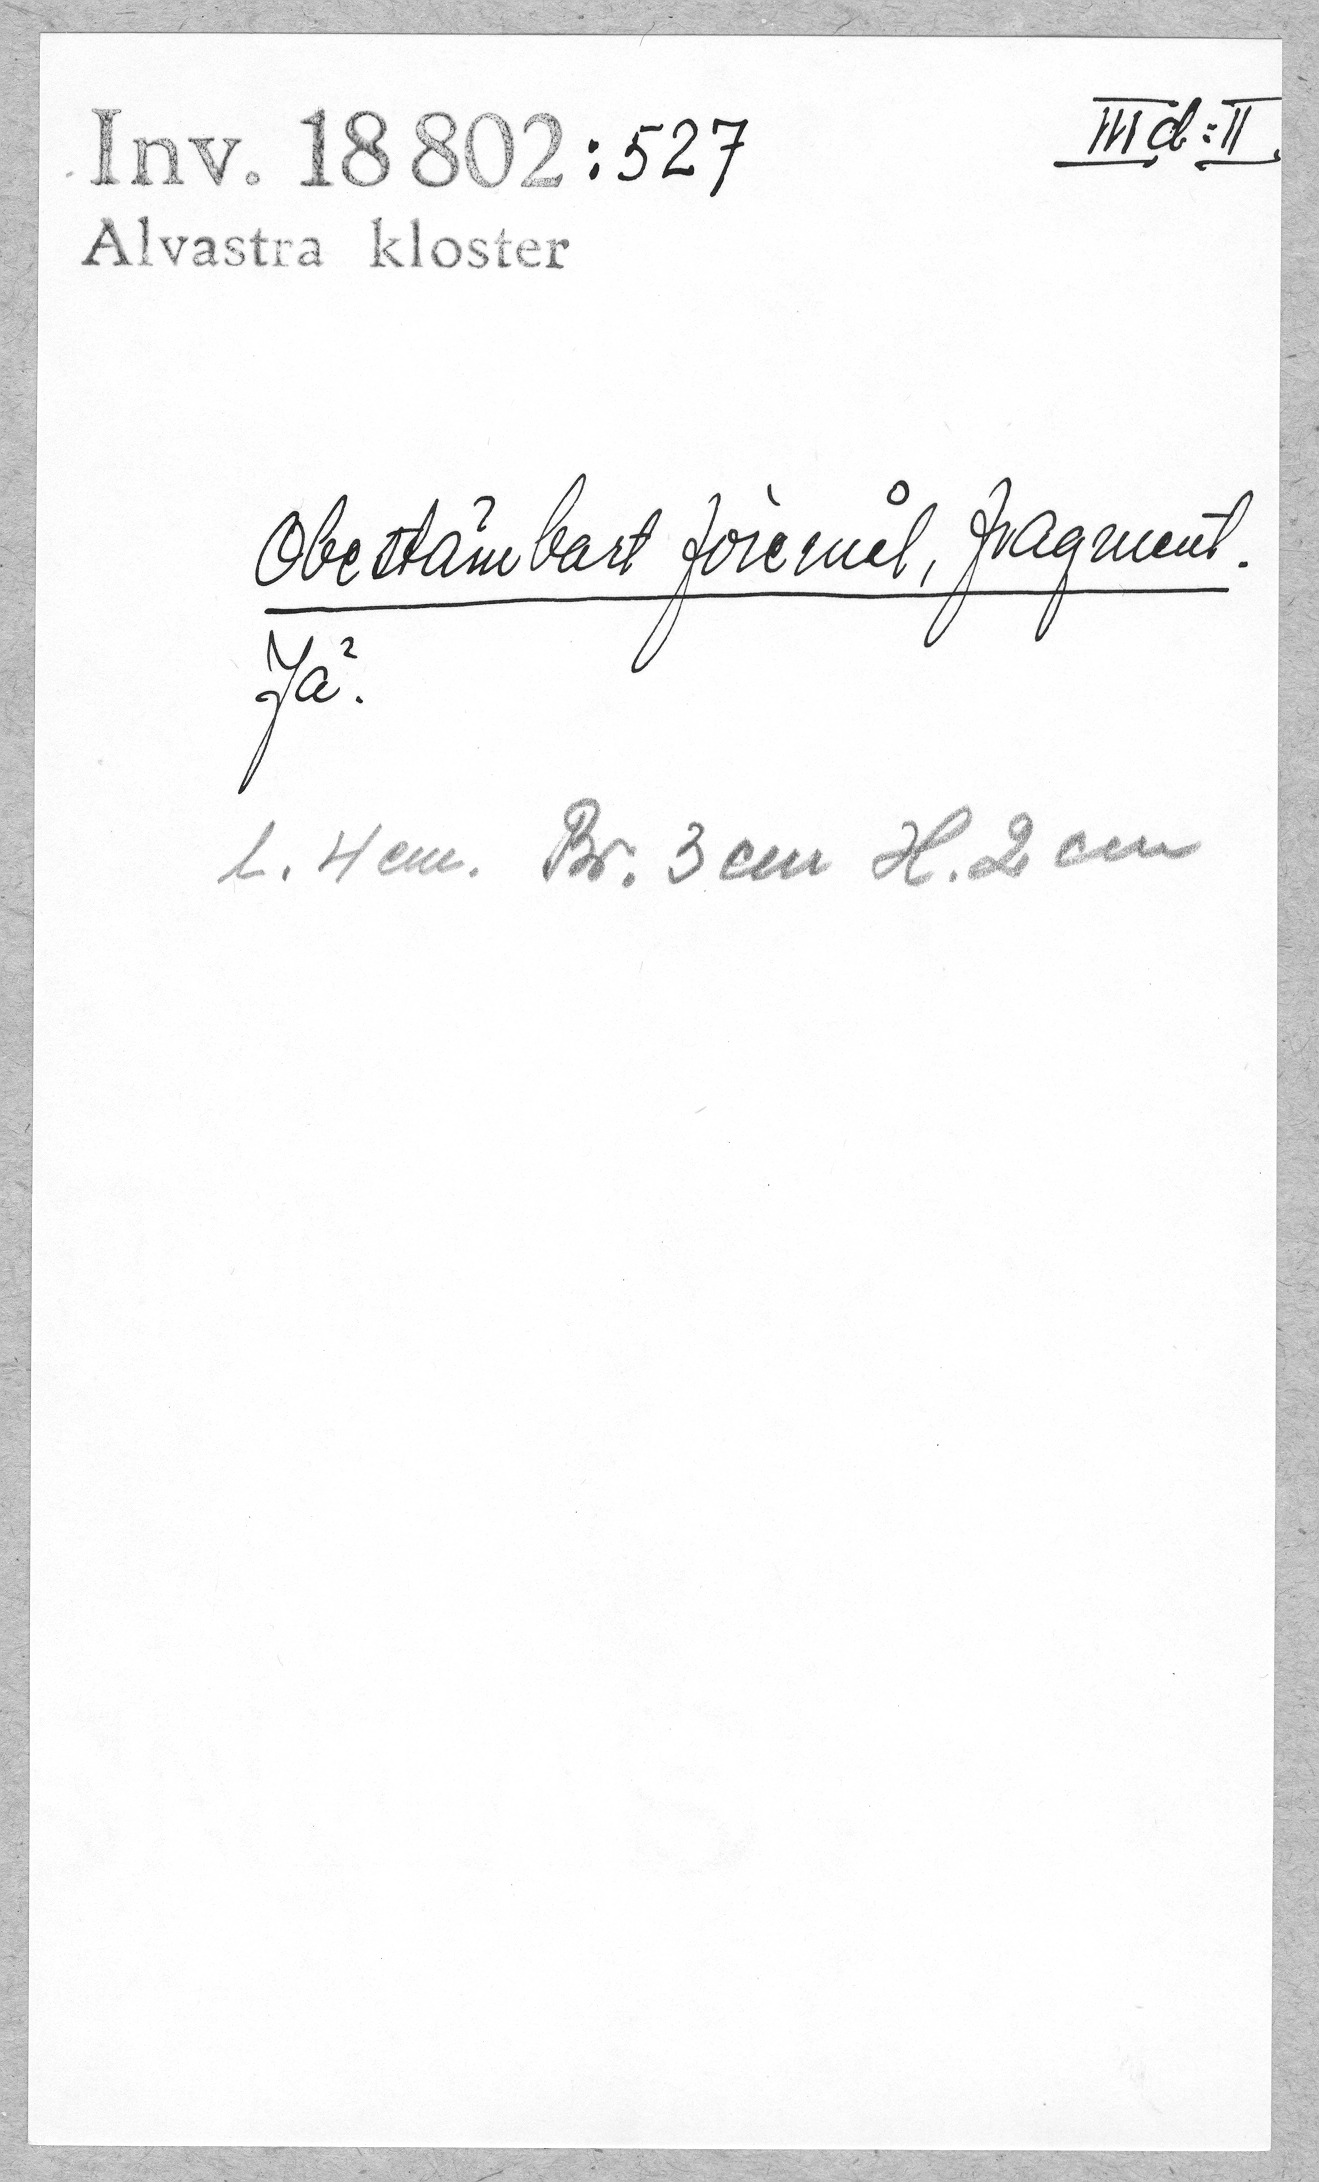 Inv. 18 802:527
III d:II.
Alvastra kloster
Obestämbart föremål, fragment.
Jä.
L. 4 cm. Br. 3 cm H. 2 cm